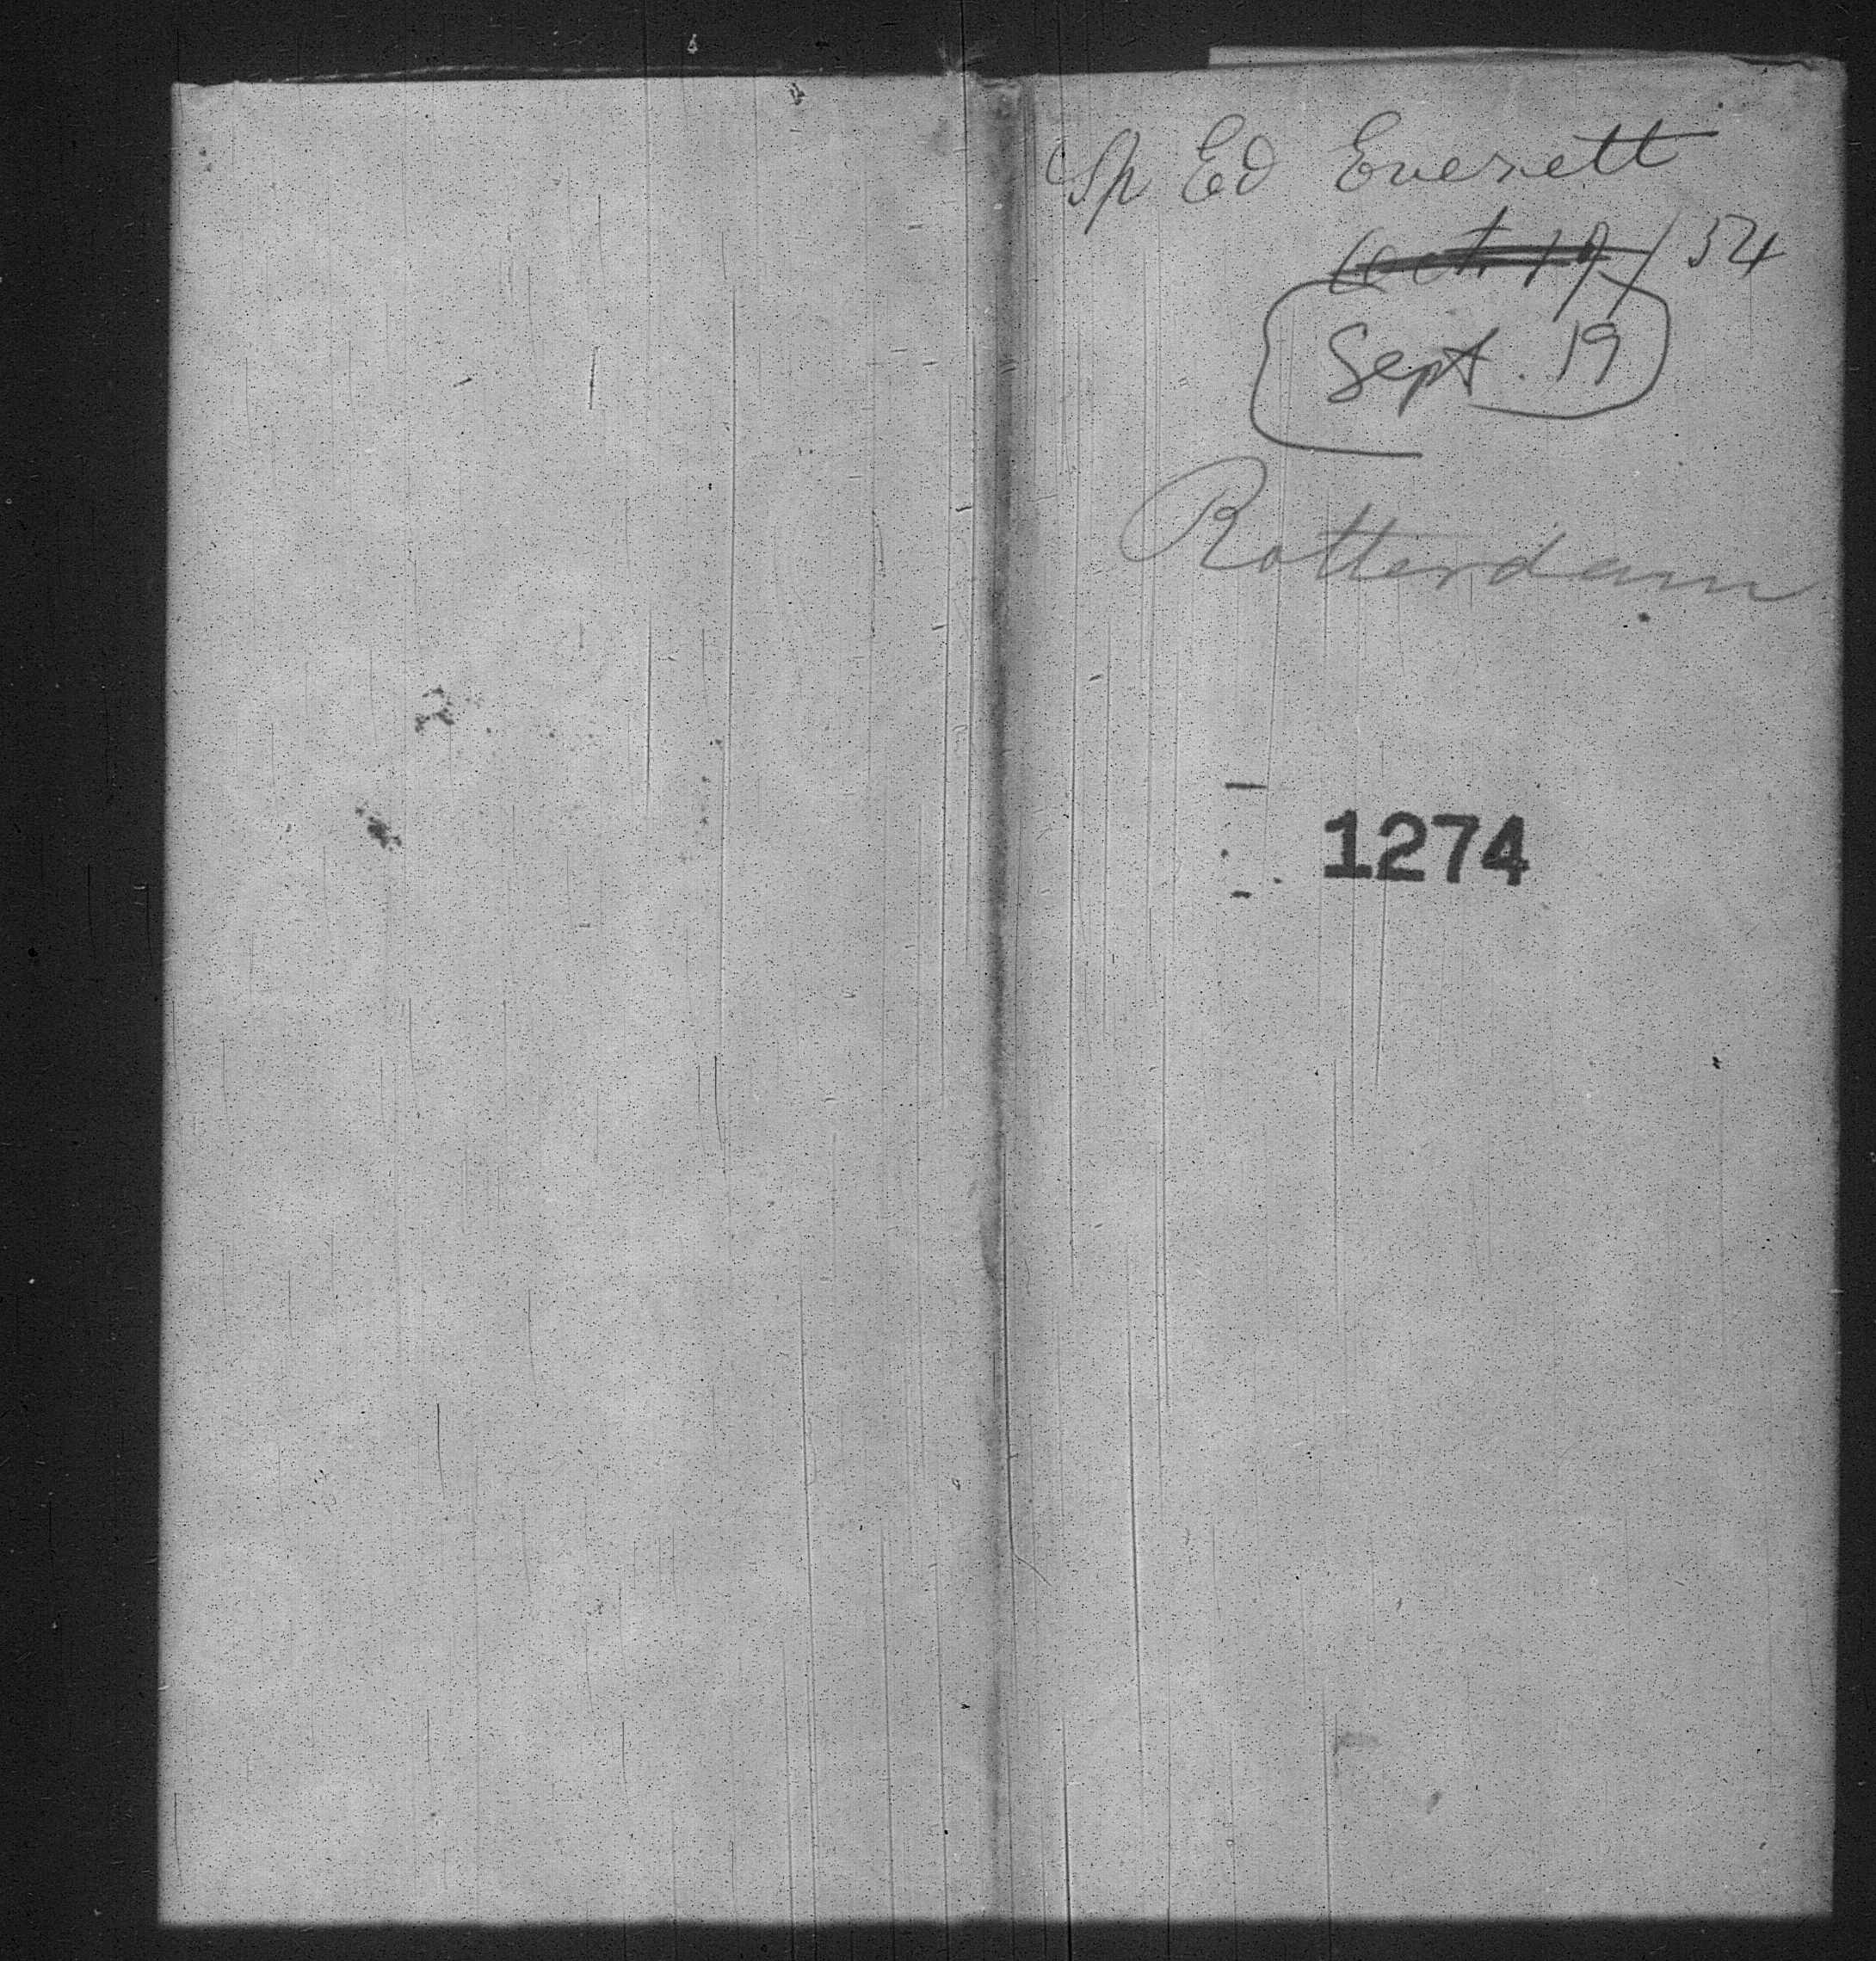 Sp Ed Everett
Oct 19/54
Sept. 19
Rotterdam
1274